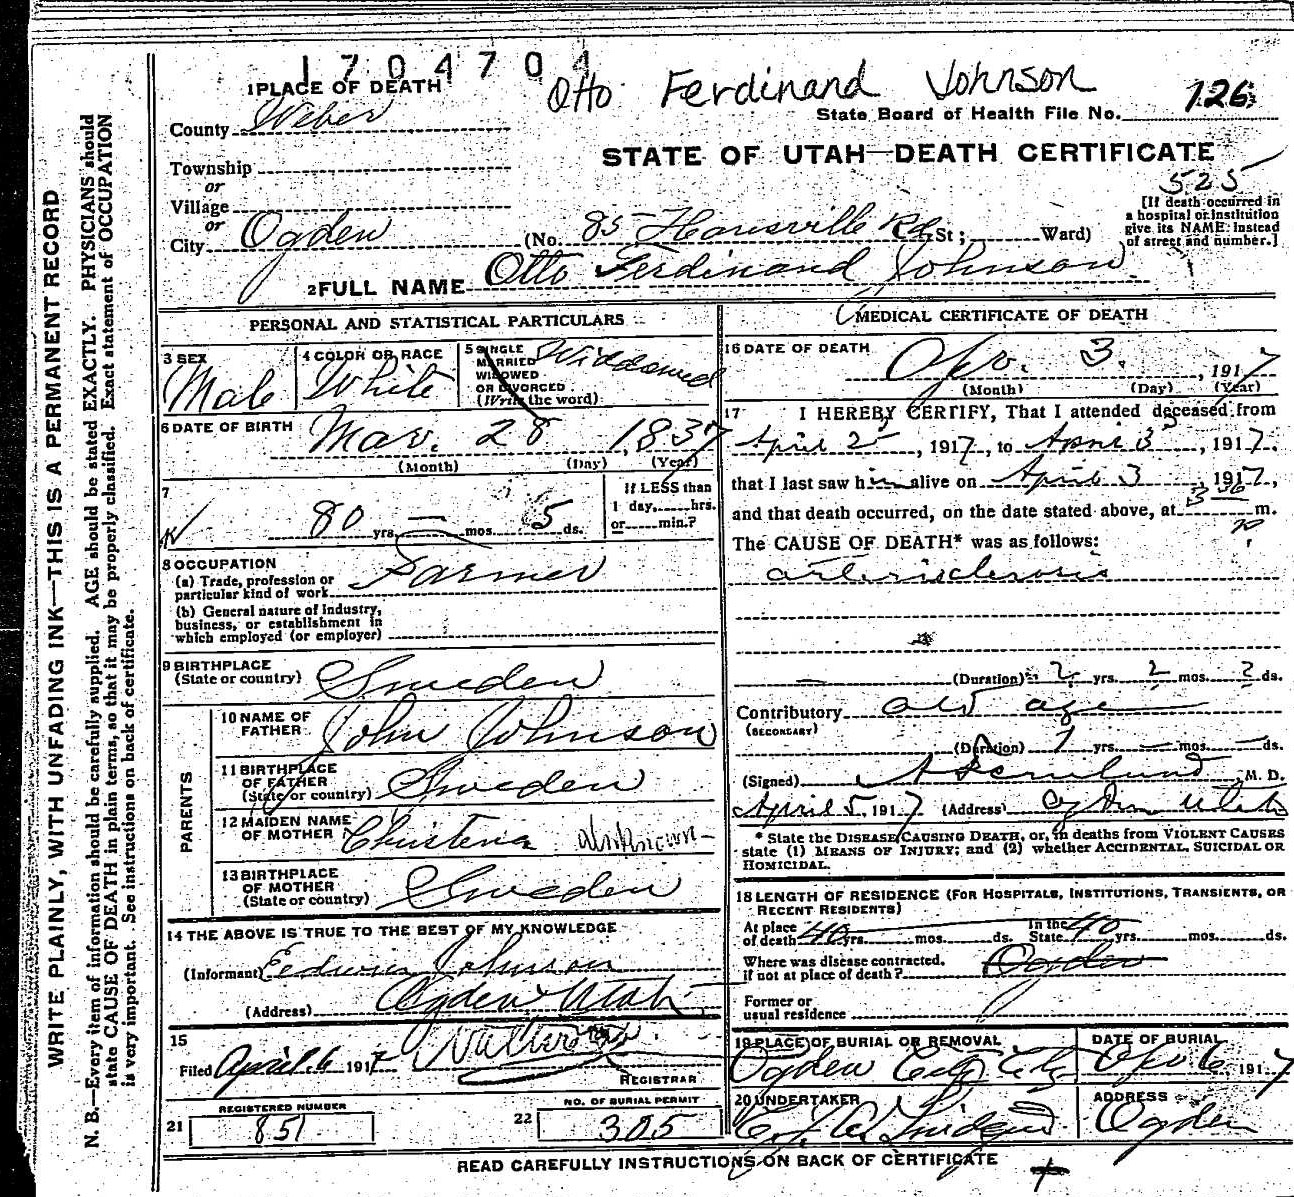 1704704
Otto Ferdinand Johnson
1 PLACE OF DEATH
County Weber
State Board of Health File No. 126
STATE OF UTAH—DEATH CERTIFICATE
525
Township
or
Village
or
City Ogden (No. 85 Harrisville Rd St; Ward)
[If death occurred in
a hospital or institution
give its NAME instead
of street and number.]
2 FULL NAME Otto Ferdinand Johnson
PERSONAL AND STATISTICAL PARTICULARS
3 SEX
Male
4 COLOR OR RACE
White
5 SINGLE
MARRIED
WIDOWED
OR DIVORCED
(Write the word)
Widdowed
6 DATE OF BIRTH Mar. 28, 1837
(Month) (Day) (Year)
7
80 yrs. — mos. 5 ds.
If LESS than
1 day, hrs.
or min.?
8 OCCUPATION
(a) Trade, profession or
particular kind of work Farmer
(b) General nature of industry,
business, or establishment in
which employed (or employer)
9 BIRTHPLACE
(State or country) Sweden
PARENTS
10 NAME OF
FATHER John Johnson
11 BIRTHPLACE
OF FATHER
(State or country) Sweden
12 MAIDEN NAME
OF MOTHER Christena unknown
13 BIRTHPLACE
OF MOTHER
(State or country) Sweden
14 THE ABOVE IS TRUE TO THE BEST OF MY KNOWLEDGE
(Informant) Johnson
(Address) Ogden Utah
15
Filed April 6 1917
REGISTRAR
REGISTERED NUMBER
21 851
NO. OF BURIAL PERMIT
22 305
MEDICAL CERTIFICATE OF DEATH
16 DATE OF DEATH
Apr. 3, 1917
(Month) (Day) (Year)
17 I HEREBY CERTIFY, That I attended deceased from
April 2, 1917, to April 3, 1917,
that I last saw him alive on April 3, 1917,
and that death occurred, on the date stated above, at 3 m.
The CAUSE OF DEATH* was as follows:
arteriosclerosis
(Duration) 2 yrs. 2 mos. 2 ds.
Contributory old age
(SECONDARY)
(Duration) yrs. — mos. — ds.
(Signed) M. D.
April 5, 1917 (Address) Ogden Utah
* State the DISEASE CAUSING DEATH, or, in deaths from VIOLENT CAUSES
state (1) MEANS OF INJURY; and (2) whether ACCIDENTAL, SUICIDAL OR
HOMICIDAL.
18 LENGTH OF RESIDENCE (FOR HOSPITALS, INSTITUTIONS, TRANSIENTS, OR
RECENT RESIDENTS)
At place
of death 40 yrs. mos. ds. In the
State 40 yrs. mos. ds.
Where was disease contracted,
if not at place of death? Ogden
Former or
usual residence
19 PLACE OF BURIAL OR REMOVAL
Ogden City
DATE OF BURIAL
Apr 6, 1917
20 UNDERTAKER
ADDRESS
Ogden
READ CAREFULLY INSTRUCTIONS ON BACK OF CERTIFICATE
WRITE PLAINLY, WITH UNFADING INK—THIS IS A PERMANENT RECORD
N. B.—Every item of information should be carefully supplied. AGE should be stated EXACTLY. PHYSICIANS should
state CAUSE OF DEATH in plain terms, so that it may be properly classified. Exact statement of OCCUPATION
is very important. See instructions on back of certificate.